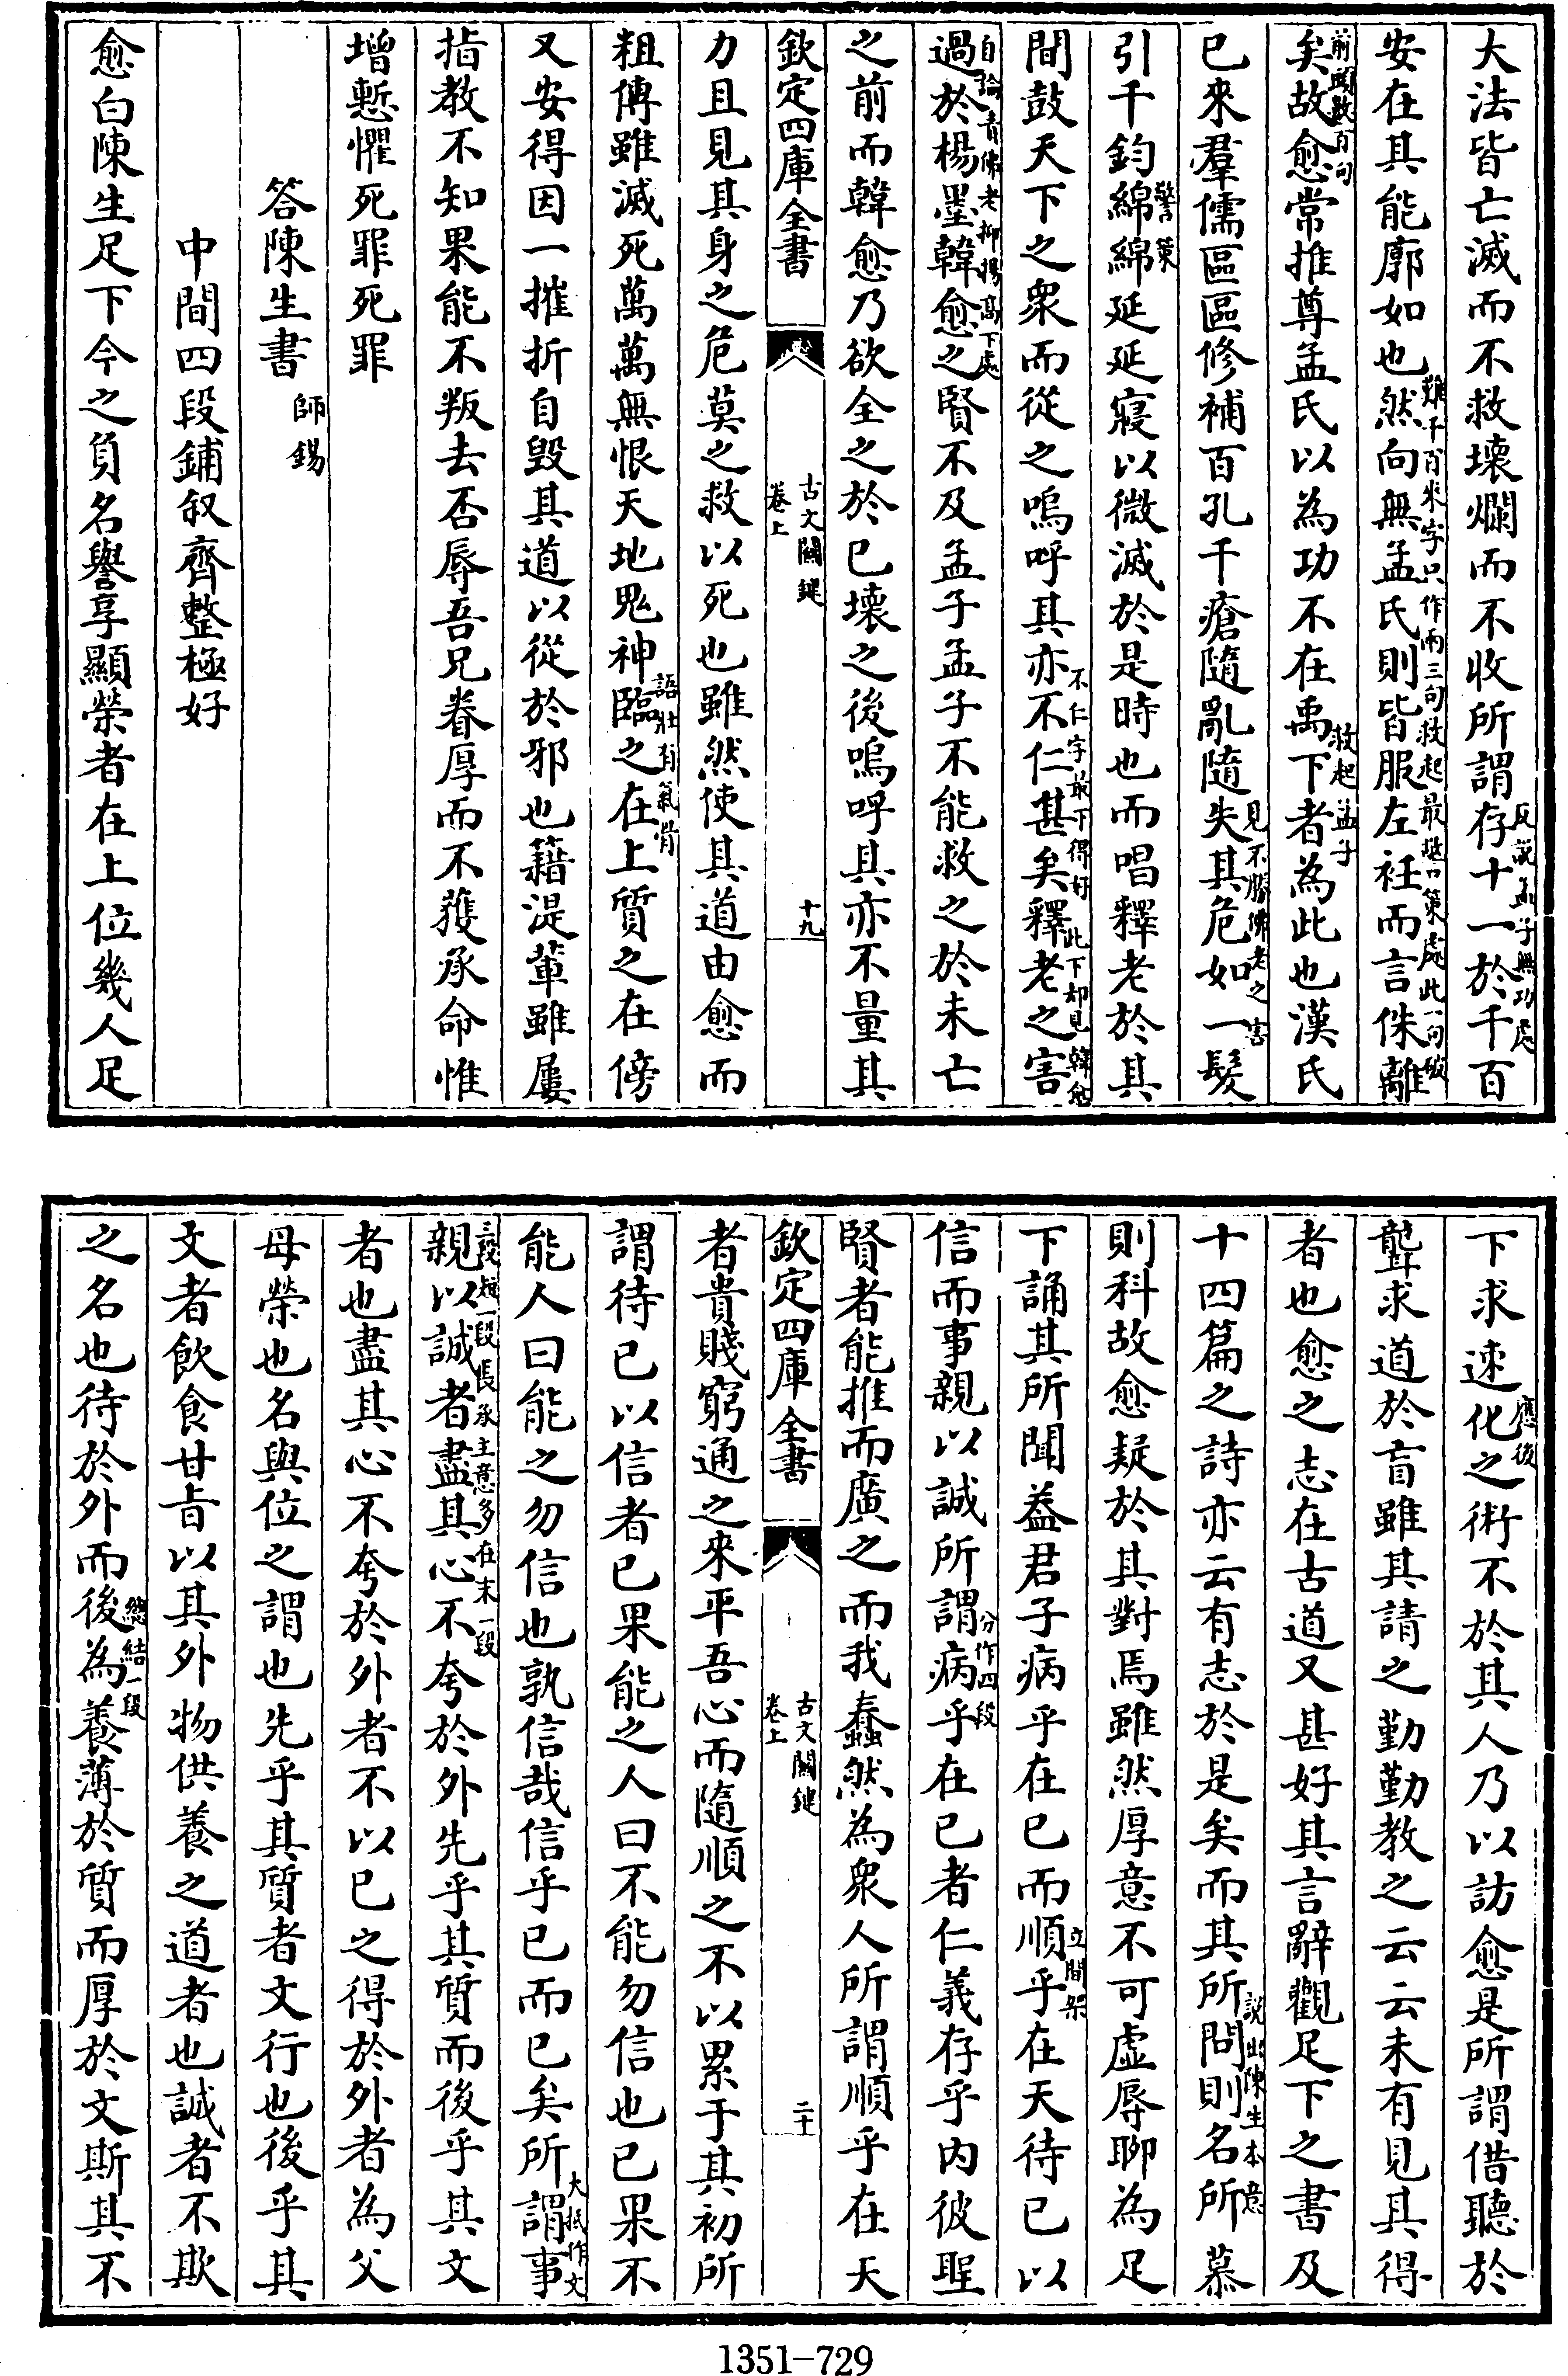 大法皆亡滅而不救壞爛而不收所謂存十一於千百
反說孟子無功處
安在其能廓如也然向無孟氏則皆服左衽而言侏離
難千百來字只作兩三句救起最警策處此一句破
前頭數百句
矣故愈常推尊孟氏以為功不在禹下者為此也漢氏
救起孟子
已來羣儒區區修補百孔千瘡隨亂隨失其危如一髮
見不勝佛老之害
引千鈞綿綿延延寢以微滅於是時也而唱釋老於其
警策
間鼓天下之衆而從之嗚呼其亦不仁甚矣釋老之害
不仁字最下得好 此下却見韓愈
自論責佛老抑揚高下處
過於楊墨韓愈之賢不及孟子孟子不能救之於未亡
之前而韓愈乃欲全之於已壞之後嗚呼其亦不量其
欽定四庫全書
古文關鍵
卷上
十九
力且見其身之危莫之救以死也雖然使其道由愈而
粗傳雖滅死萬萬無恨天地鬼神臨之在上質之在傍
語壯有氣骨
又安得因一摧折自毀其道以從於邪也籍湜輩雖屢
指教不知果能不叛去否辱吾兄眷厚而不獲承命惟
增慙懼死罪死罪
答陳生書 師錫
中間四段鋪叙齊整極好
愈白陳生足下今之負名譽享顯榮者在上位幾人足
下求速化之術不於其人乃以訪愈是所謂借聽於
應後
聾求道於盲雖其請之勤勤教之云云未有見其得
者也愈之志在古道又甚好其言辭觀足下之書及
十四篇之詩亦云有志於是矣而其所問則名所慕
說出陳生本意
則科故愈疑於其對焉雖然厚意不可虛辱聊為足
下誦其所聞葢君子病乎在已而順乎在天待已以
立間架
信而事親以誠所謂病乎在已者仁義存乎內彼聖
分作四段
賢者能推而廣之而我蠢然為衆人所謂順乎在天
欽定四庫全書
古文關鍵
卷上
二十
者貴賤窮通之來平吾心而隨順之不以累于其初所
謂待已以信者已果能之人曰不能勿信也已果不
能人曰能之勿信也孰信哉信乎已而已矣所謂事
大抵作文
三段短一段長承主意多在末一段
親以誠者盡其心不夸於外先乎其質而後乎其文
者也盡其心不夸於外者不以已之得於外者為父
母榮也名與位之謂也先乎其質者文行也後乎其
文者飲食甘旨以其外物供養之道者也誠者不欺
之名也待於外而後為養薄於質而厚於文斯其不
總結一段
1351-729